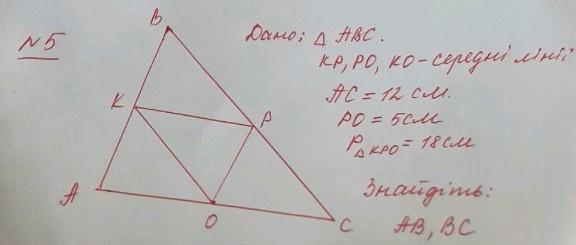 №5
Дано: △ ABC.
KP, PO, KO - середні лінії
AC = 12 см.
PO = 5см
P△KPO = 18см
Знайдіть:
AB, BC
B
K
P
A
O
C